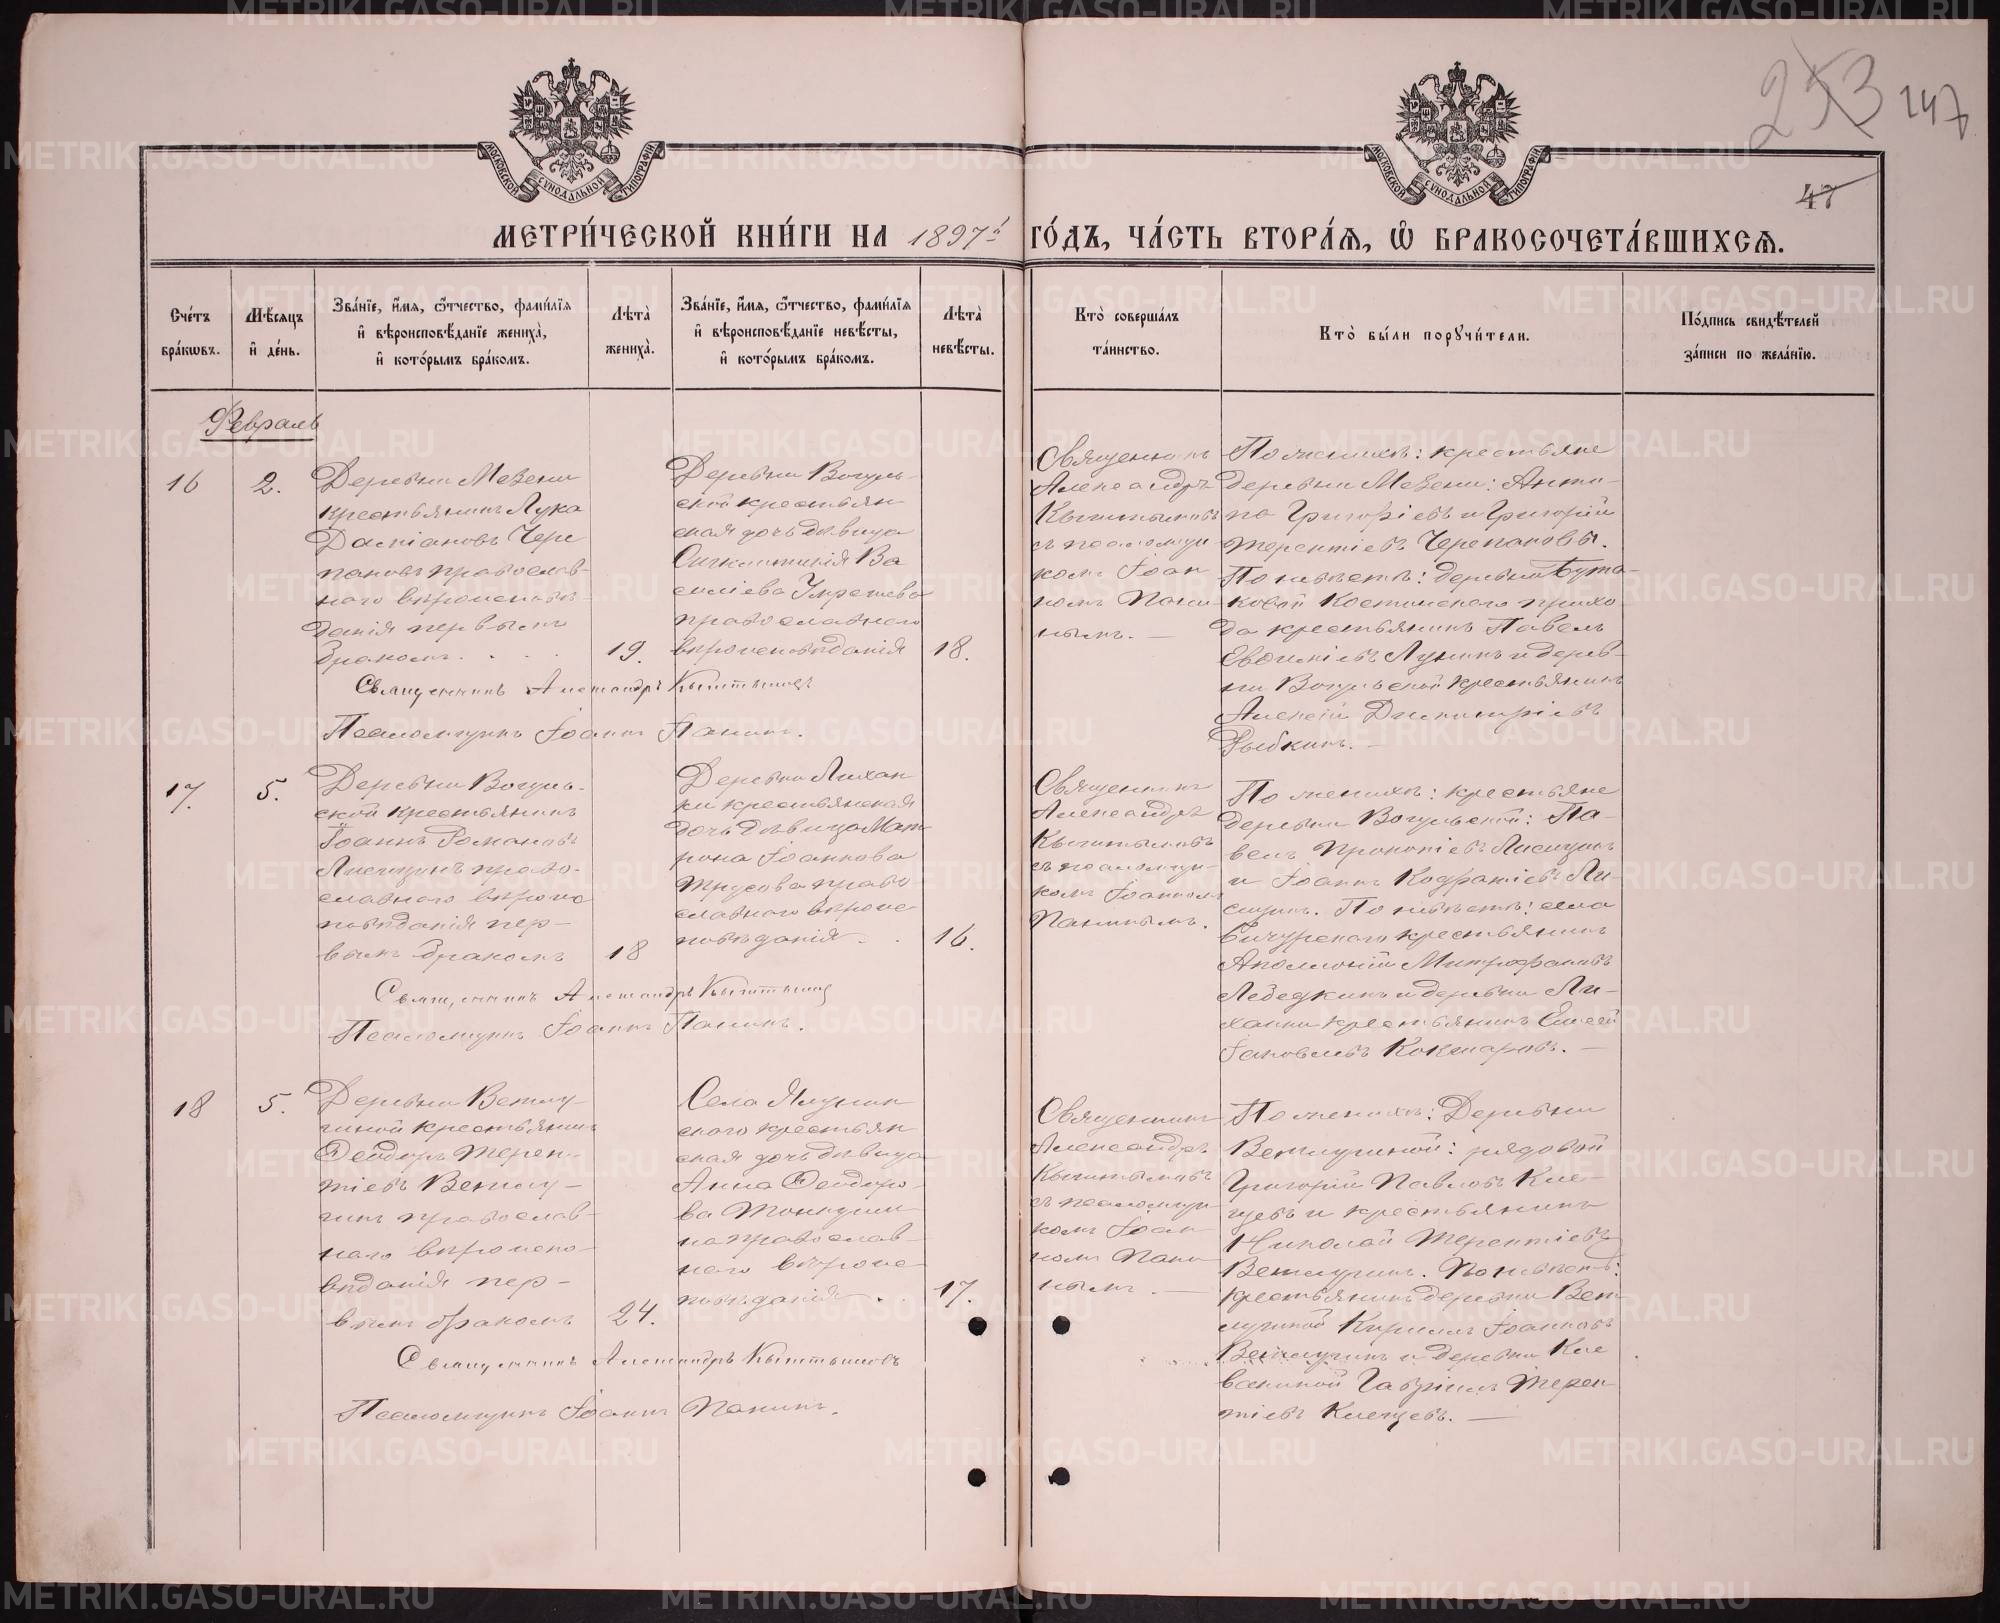 253 247
47
МОСКОВСКОЙ СѴНОДАЛЬНОЙ ТИПОГРАФІИ
МОСКОВСКОЙ СѴНОДАЛЬНОЙ ТИПОГРАФІИ
МЕТРИ́ЧЕСКОЙ КНИ́ГИ НА 1897й ГО́ДЪ, ЧА́СТЬ ВТОРА́Я, Ѡ҆ БРАКОСОЧЕТА́ВШИХСѦ.
Сче́тъ бра́кѡвъ.
Мѣ́сѧцъ и҆ де́нь.
Зва́нїе, и҆́мѧ, ѻ҆́тчество, фамі́лїѧ и҆ вѣроисповѣ́данїе жениха̀, и҆ кото́рымъ бра́комъ.
Лѣ́та жениха̀.
Зва́нїе, и҆́мѧ, ѻ҆́тчество, фамі́лїѧ и҆ вѣроисповѣ́данїе невѣ́сты, и҆ кото́рымъ бра́комъ.
Лѣ́та невѣ́сты.
Кто̀ соверша́лъ та́инство.
Кто̀ бы́ли порꙋчи́тели.
По́дпись свидѣ́телей за́писи по жела́нїю.
Февраль
16
2.
Деревни Мезени
крестьянинъ Лука
Даміановъ Чере
пановъ православ-
наго вѣроисповѣ-
данія первымъ
бракомъ. . .
19.
Деревни Вогуль-
ской крестьян
ская дочь дѣвица
Синклитикія Ва
силіева
православнаго
вѣроисповѣданія
18.
Священникъ
Александръ
Кыштымовъ
съ псаломщи-
комъ Іоан
номъ Пани-
нымъ. —
По женихѣ: крестьяне
деревни Мезени: Анти-
па Григоріевъ и Григорій
Терентіевъ Черепановы.
По невѣстѣ: деревни Бута-
ковой Костинскаго прихо-
да крестьянинъ Павелъ
Евѳиміевъ Лукинъ и дерев-
ни Вогульской крестьянинъ
Алексій Димитріевъ
Рыбкинъ. —
Священникъ Александръ Кыштымовъ
Псаломщикъ Іоаннъ Панинъ.
17.
5.
Деревни Вогуль-
ской крестьянинъ
Іоаннъ Романовъ
Лисицинъ право-
славнаго вѣроис
повѣданія пер-
вымъ бракомъ
18
Деревни Лихан
ки крестьянская
дочь дѣвица Мат
рона Іоаннова
Трусова право
славнаго вѣроис
повѣданія. .
16.
Священникъ
Александръ
Кыштымовъ
съ псаломщи-
комъ Іоанномъ
Панинымъ.
По женихѣ: крестьяне
деревни Вогульской: Па-
велъ Прокопіевъ Лисицинъ
и Іоаннъ Кодратіевъ Ли-
сицинъ. По невѣстѣ: села
Бичурскаго крестьянинъ
Аполлоній Митрофановъ
Лебедкинъ и деревни Ли-
ханки крестьянинъ Елисей
Іаковлевъ Кокшаровъ. —
Священникъ Александръ Кыштымовъ
Псаломщикъ Іоаннъ Панинъ.
18
5.
Деревни Ветлу-
гиной крестьянинъ
Ѳеодоръ Терен-
тіевъ Ветлу-
гинъ православ-
наго вѣроиспо-
вѣданія пер-
вымъ бракомъ
24.
Села Ялунин
скаго крестьян
ская дочь дѣвица
Анна Ѳеодоро-
ва Тонкуши
на православ-
наго вѣроис
повѣданія. .
17.
Священникъ
Александръ
Кыштымовъ
съ псаломщи-
комъ Іоан
номъ Пани
нымъ. —
По женихѣ: Деревни
Ветлугиной: рядовой
Григорій Павловъ Кле-
щевъ и крестьянинъ
Николай Терентіевъ
Ветлугинъ. По невѣстѣ:
крестьянинъ деревни Вет
лугиной Кириллъ Іоанновъ
Ветлугинъ и деревни Кле
вакиной Гавріилъ Терен
тіевъ Клещевъ. —
Священникъ Александръ Кыштымовъ
Псаломщикъ Іоаннъ Панинъ.
METRIKI.GASO-URAL.RU